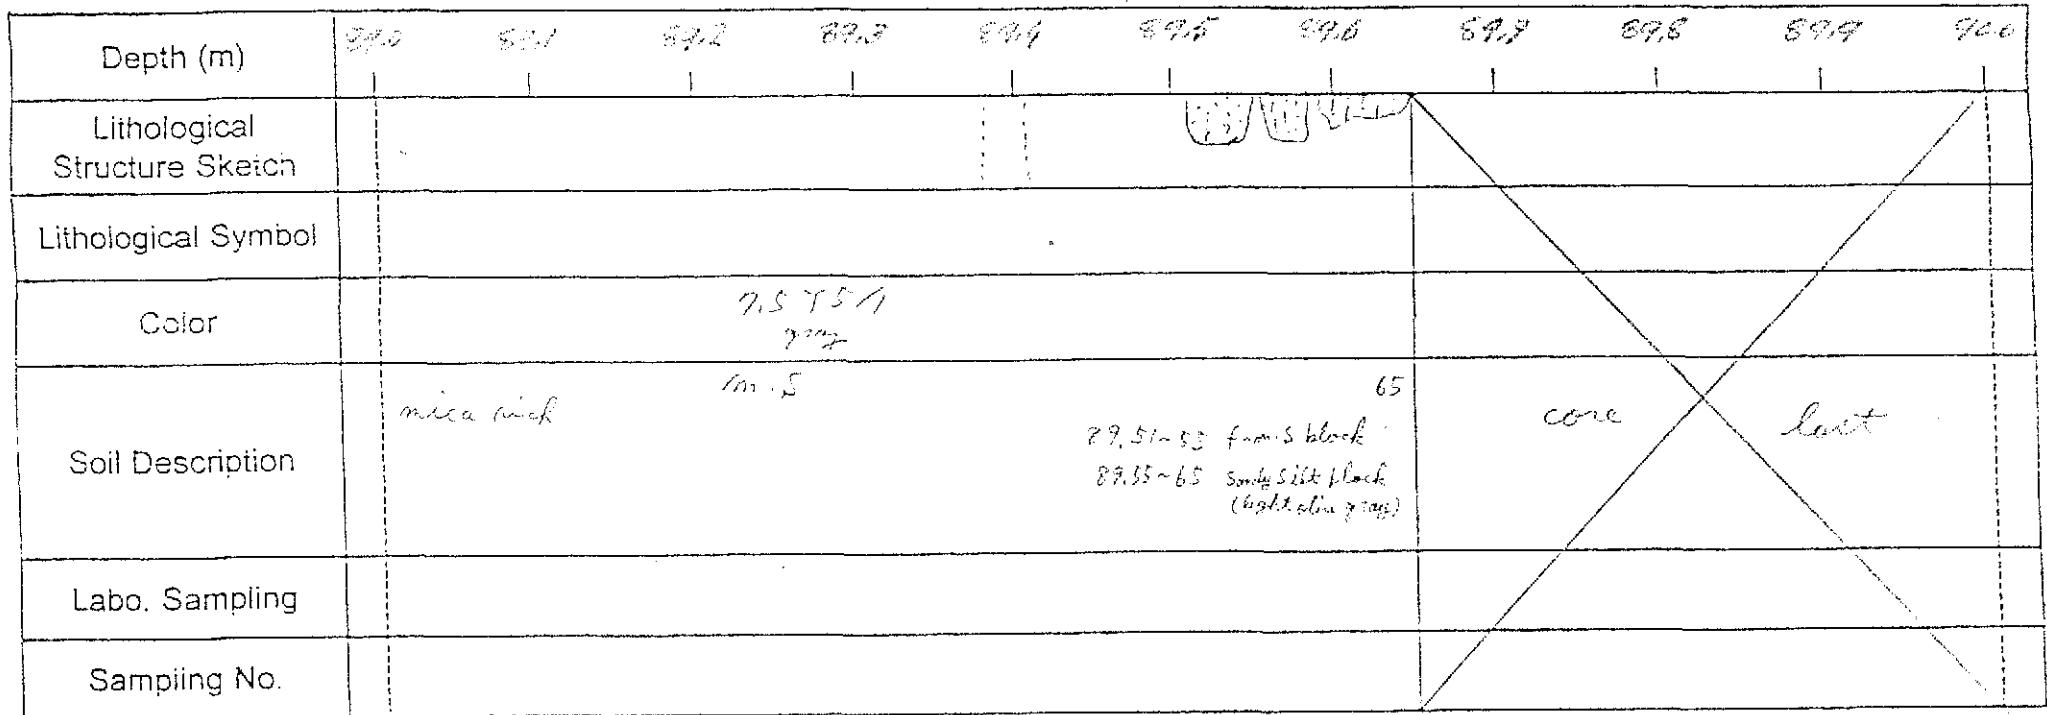 Depth (m) 89.0 89.1 89.2 89.3 89.4 89.5 89.6 89.7 89.8 89.9 90.0
Lithological
Structure Sketch
Lithological Symbol
Color 7.5 Y 5/1
gray
Soil Description
m.S 65
mica rich
core lost
89.51~55 f~m.S block
89.55~65 Sandy Silt block
(light olive gray)
Labo. Sampling
Sampling No.